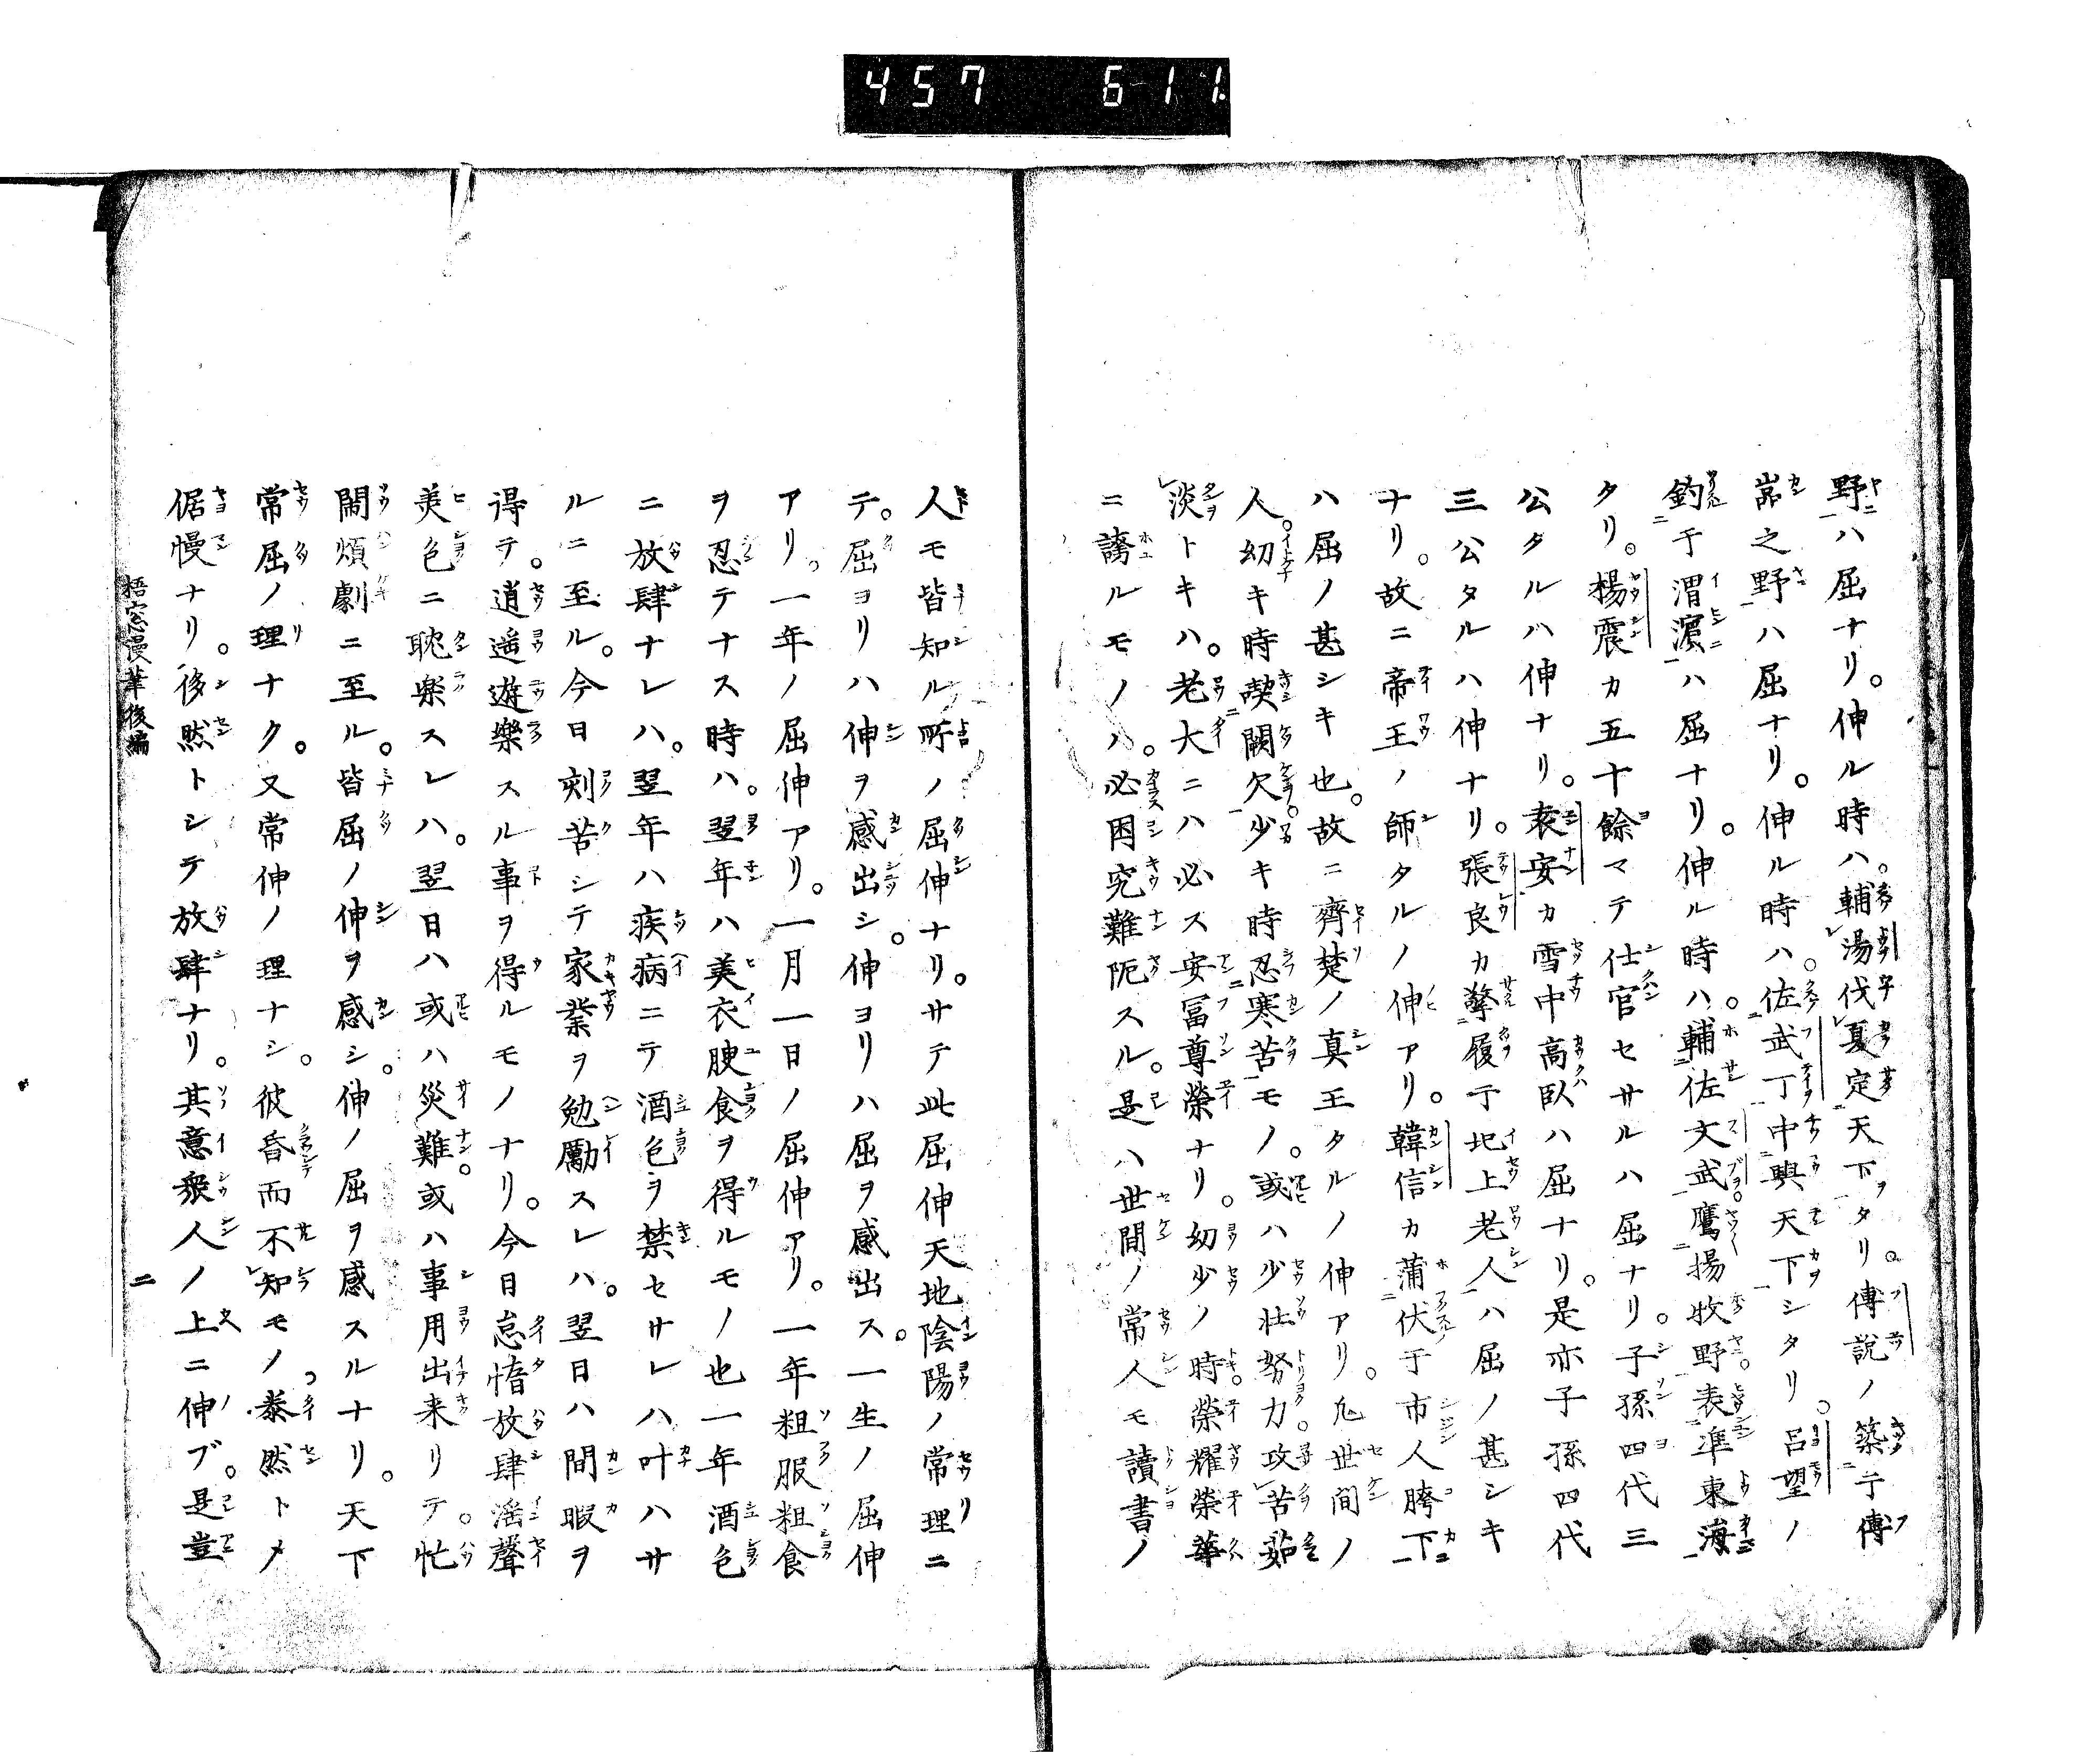 457 6-11
野ハ屈ナリ。伸ル時ハ。輔湯伐夏定天下タリ。傳説ノ築于傳
喦之野ハ屈ナリ。伸ル時ハ。佐武丁中興天下シタリ。呂望ノ
釣于渭濵ハ屈ナリ。伸ル時ハ。輔佐文武鷹揚牧野。表準東海
タリ。楊震カ五十餘マテ仕官セサルハ屈ナリ。子孫四代三
公タルハ伸ナリ。袁安カ雪中高臥ハ屈ナリ。是亦子孫四代
三公タルハ伸ナリ。張良カ擎履于圯上老人ハ屈ノ甚シキ
ナリ。故ニ帝王ノ師タルノ伸アリ。韓信カ蒲伏于市人胯下
ハ屈ノ甚シキ也。故ニ齊楚ノ真王タルノ伸アリ。凡世间ノ
人。幼キ時喫闕欠。少キ時忍寒苦モノ。或ハ少壮努力。攻苦茹
淡トキハ。老大ニハ必ス安冨尊榮ナリ。幼少ノ時。榮耀榮華
ニ誇ルモノハ。必困究難阨スル。是ハ世間ノ常人モ讀書ノ
人モ皆知ル所ノ屈伸ナリ。サテ此屈伸天地陰陽ノ常理ニ
テ。屈ヨリハ伸ヲ感出シ。伸ヨリハ屈ヲ感出ス。一生ノ屈伸
アリ。一年ノ屈伸アリ。一月一日ノ屈伸アリ。一年粗服粗食
ヲ忍テナス時ハ。翌年ハ美衣腴食ヲ得ルモノ也一年酒色
ニ放肆ナレハ。翌年ハ疾病ニテ酒色ヲ禁セサレハ叶ハサ
ルニ至ル。今日刻苦シテ家業ヲ勉勵スレハ。翌日ハ間暇ヲ
得テ。逍遥遊樂スル事ヲ得ルモノナリ。今日怠惰放肆滛聲
美色ニ耽楽スレハ。翌日ハ或ハ災難。或ハ事用出来リテ。忙
閙煩劇ニ至ル。皆屈ノ伸ヲ感シ。伸ノ屈ヲ感スルナリ。天下
常屈ノ理ナク。又常伸ノ理ナシ。彼昏而不知モノ。泰然トメ
倨慢ナリ。侈然トシテ放肆ナリ。其意衆人ノ上ニ伸ブ。是豈
梧窓漫筆後編 二